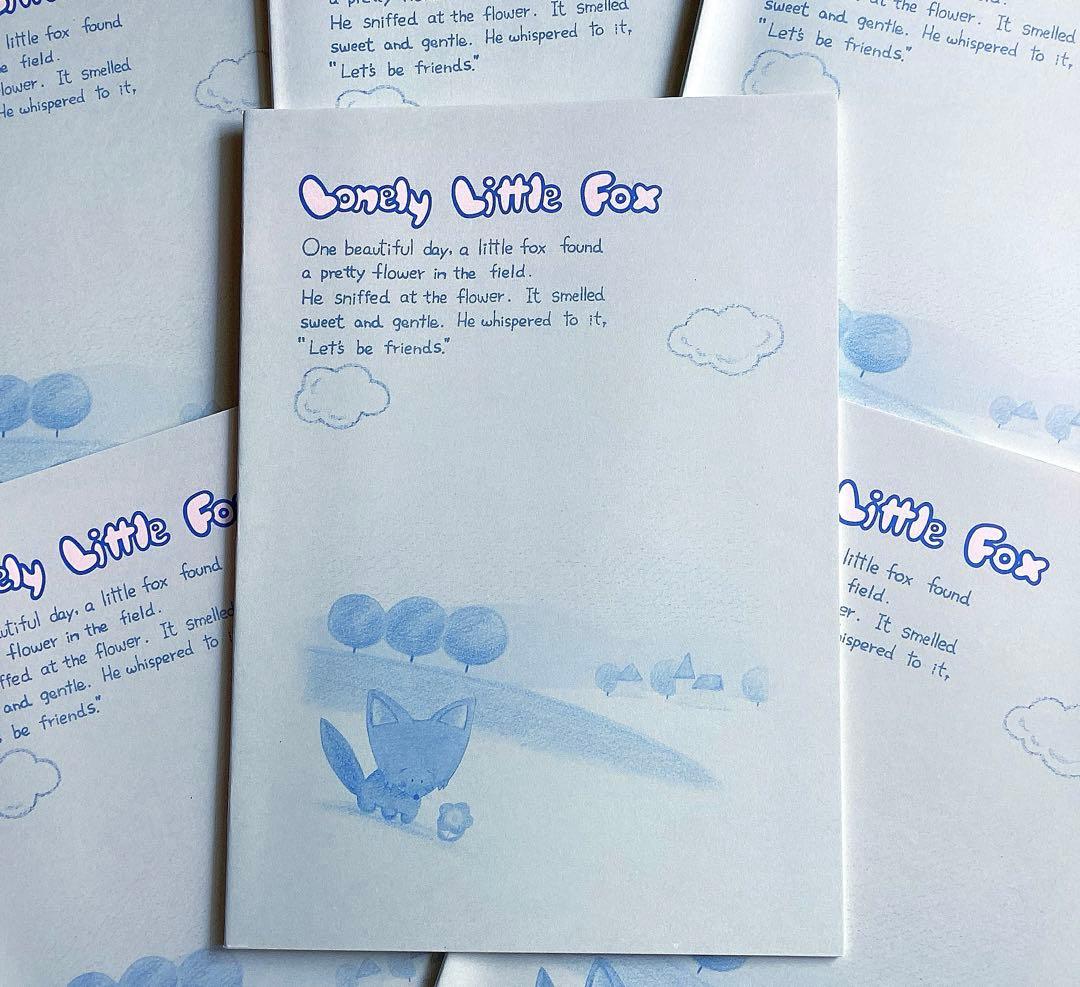 little fox found
e field.
lower. It smelled
He whispered to it,
He sniffed at the flower. It smelled
sweet and gentle. He whispered to it,
"Let's be friends."
the flower. It smelled
sweet and gentle. He whispered to it,
"Let's be friends."
Lonely Little Fox
One beautiful day, a little fox found
a pretty flower in the field.
He sniffed at the flower. It smelled
sweet and gentle. He whispered to it,
"Let's be friends."
ely Little Fo
utiful day, a little fox found
flower in the field.
ffed at the flower. It smelled
and gentle. He whispered to
be friends."
Little Fox
little fox found
field.
er. It smelled
ispered to it,